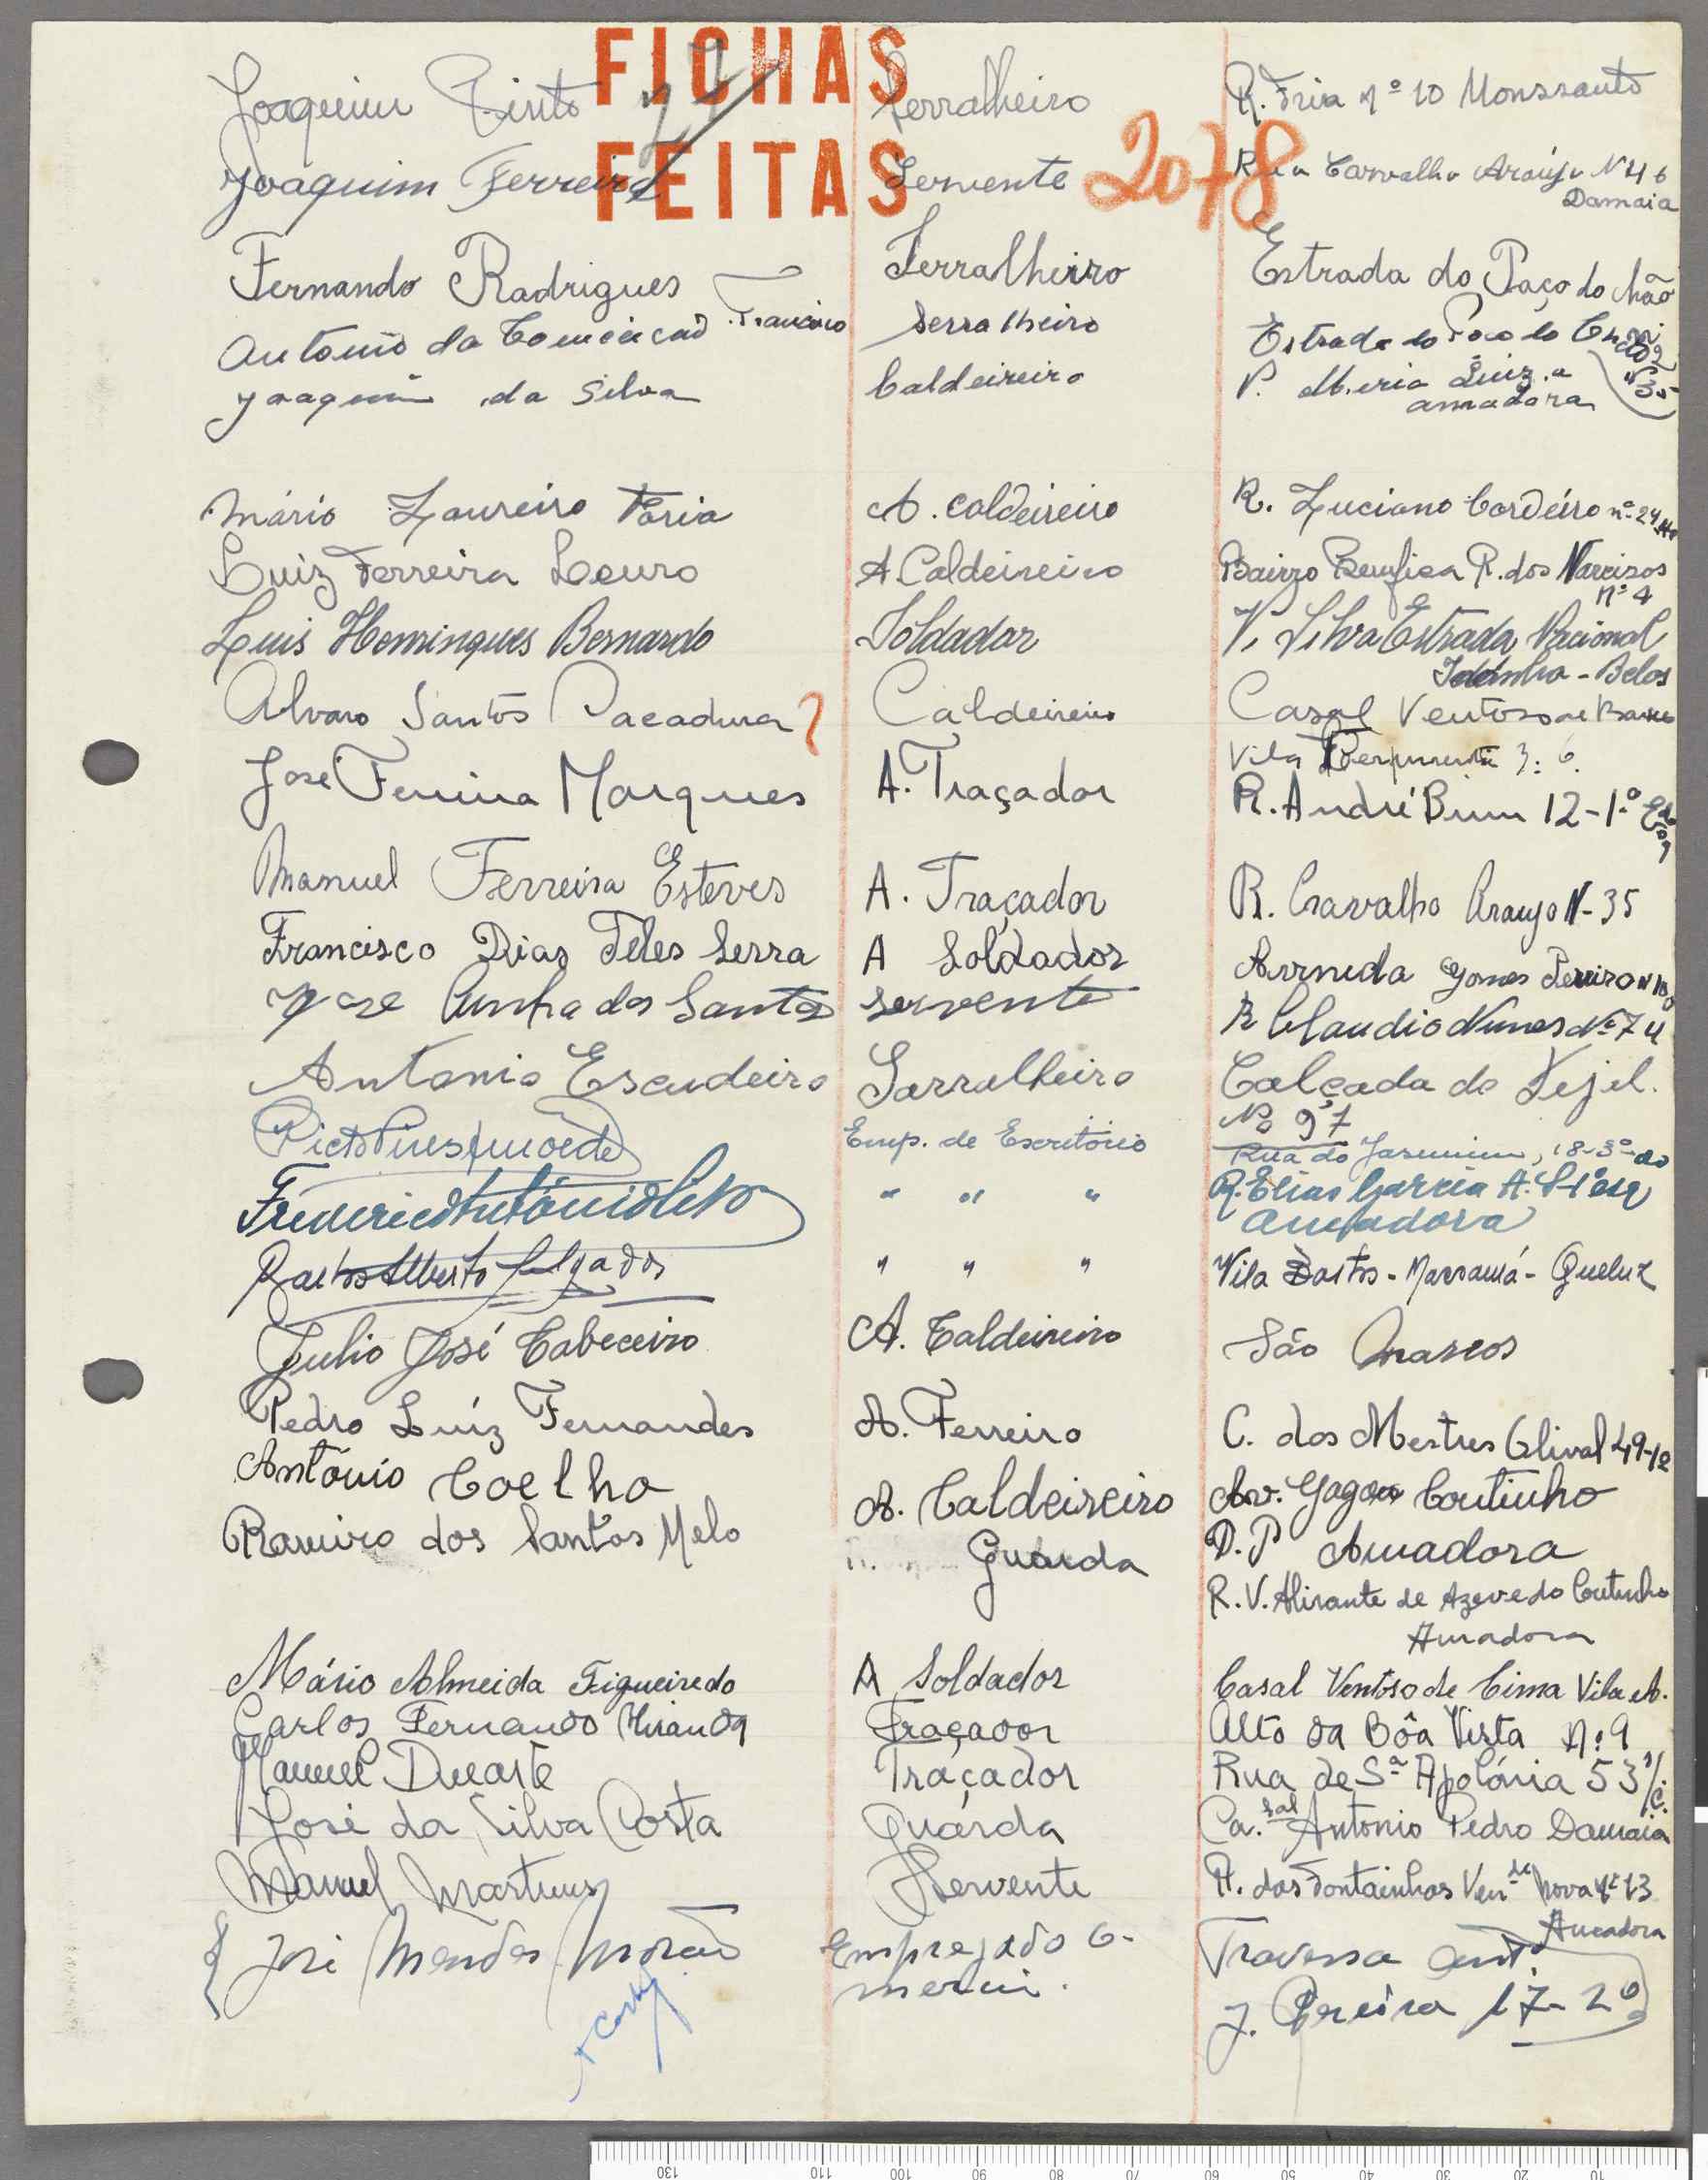 FICHAS
FEITAS
2078
Joaquim Pinto Serralheiro R. Fria nº 10 Monssanto
Joaquim Ferreira Servente Rua Carvalho Araújo N 46
Damaia
Fernando Rodrigues Serralheiro Estrada do Poço do Chão
Antonio da Conceicao Francisco Serralheiro Estrada do Poço do Chão
Joaquim da Silva Caldeireiro V. Maria Luiza
amadora
Mário Loureiro Faria A. Caldeireiro R. Luciano Cordeiro nº 24
Luiz Ferreira Louro A. Caldeireiro Bairro Benfica R. dos Narcisos
nº 4
Luis Homingues Bernardo Soldador V. Silva Estrada Nacional
Idanha - Belas
Alvaro Santos Pacadura Caldeireiro Casal Ventoso de Baixo
Vila 3: 6.
José Ferreira Marques A. Traçador R. André Brun 12-1º Edo
Manuel Ferreira Esteves A. Traçador R. Cravalho Araujo N-35
Francisco Dias Teles Serra A Soldador Avenida Gomes Pereira
José Cunha dos Santos Servente R Claudio Nunes Nº 74
Antonio Escudeiro Serralheiro Calçada do Tejel.
Nº 97
Emp. de Escritório Rua do Jasmim, 18-3º do
" " " R. Elias Garcia
Amadora
Carlos Alberto Salgados " " " Vila Bastos - Massamá - Queluz
Julio José Cabeceiro A. Caldeireiro São Marcos
Pedro Luíz Fernandes A. Ferreiro C. dos Mestres Olival 49-1º
António Coelho A. Caldeireiro Av. Gago Coutinho
D. P Amadora
Ramiro dos Santos Melo Guarda
R. V. Alirante de Azevedo Coutinho
Amadora
Mário Almeida Figueiredo A Soldador Casal Ventoso de Cima Vila A.
Carlos Fernando Miranda Traçador Alto da Bôa Vista nº 9
Manuel Duarte Traçador Rua de Sta Apolónia 53 r/c.
José da Silva Costa Guarda Ca.sal Antonio Pedro Damaia
Manuel Martins Servente R. das Fontainhas Ven.de Nova Nº 13
Amadora
José Mendes Morão Empregado Co-
merci. Travessa Antº
J. Pereira 17-2º